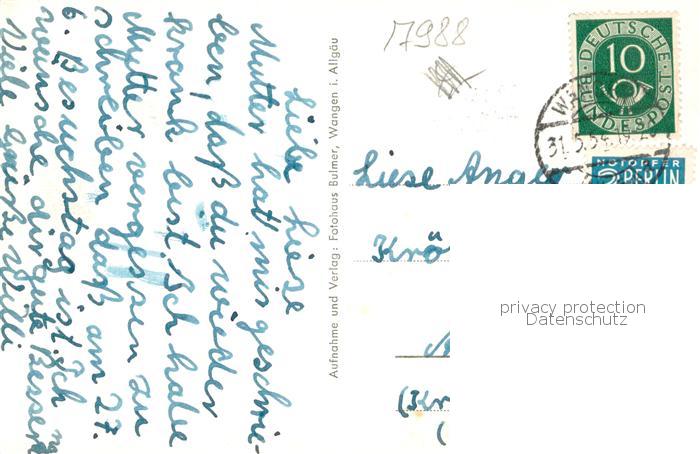 Liebe Liese
Mutter hat mir geschrie-
ben, daß du wieder
krank bist. Ich habe
Mutter vergessen zu
schreiben daß am 27.
6. Besuchstag ist. Ich
wünsche dir gute Besserung
Viele Grüße Willi
Aufnahme und Verlag: Fotohaus Bulmer, Wangen i. Allgäu
17988
DEUTSCHE
10
BUNDESPOST
31.5.54
NOTOPFER
2 BERLIN
Liese
Krö
(Kr
(
privacy protection
Datenschutz